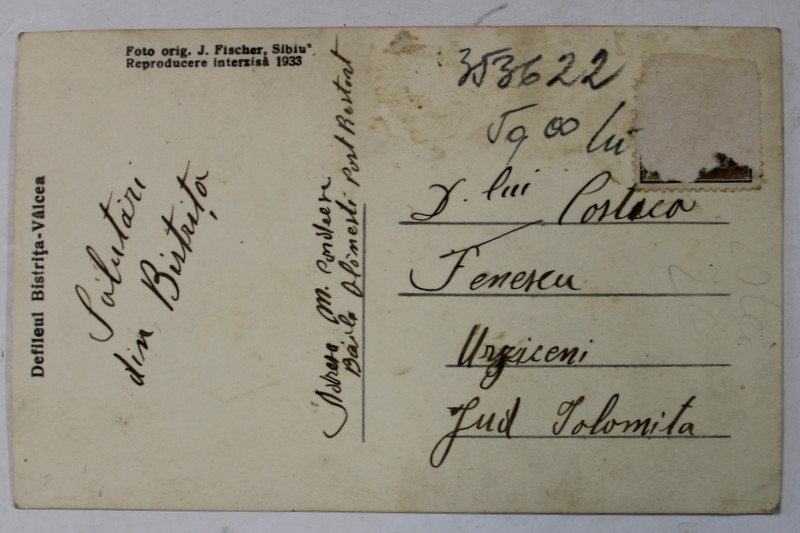 Foto orig. J. Fischer, Sibiu
Reproducere interzisă 1933
Defileul Bistriţa-Vâlcea
Salutări
din Bistrița
Adresa M.
Băile Olănești Post Restant
353622
5900 lei
D. lui Costaca
Fenescu
Urziceni
Jud Ialomita